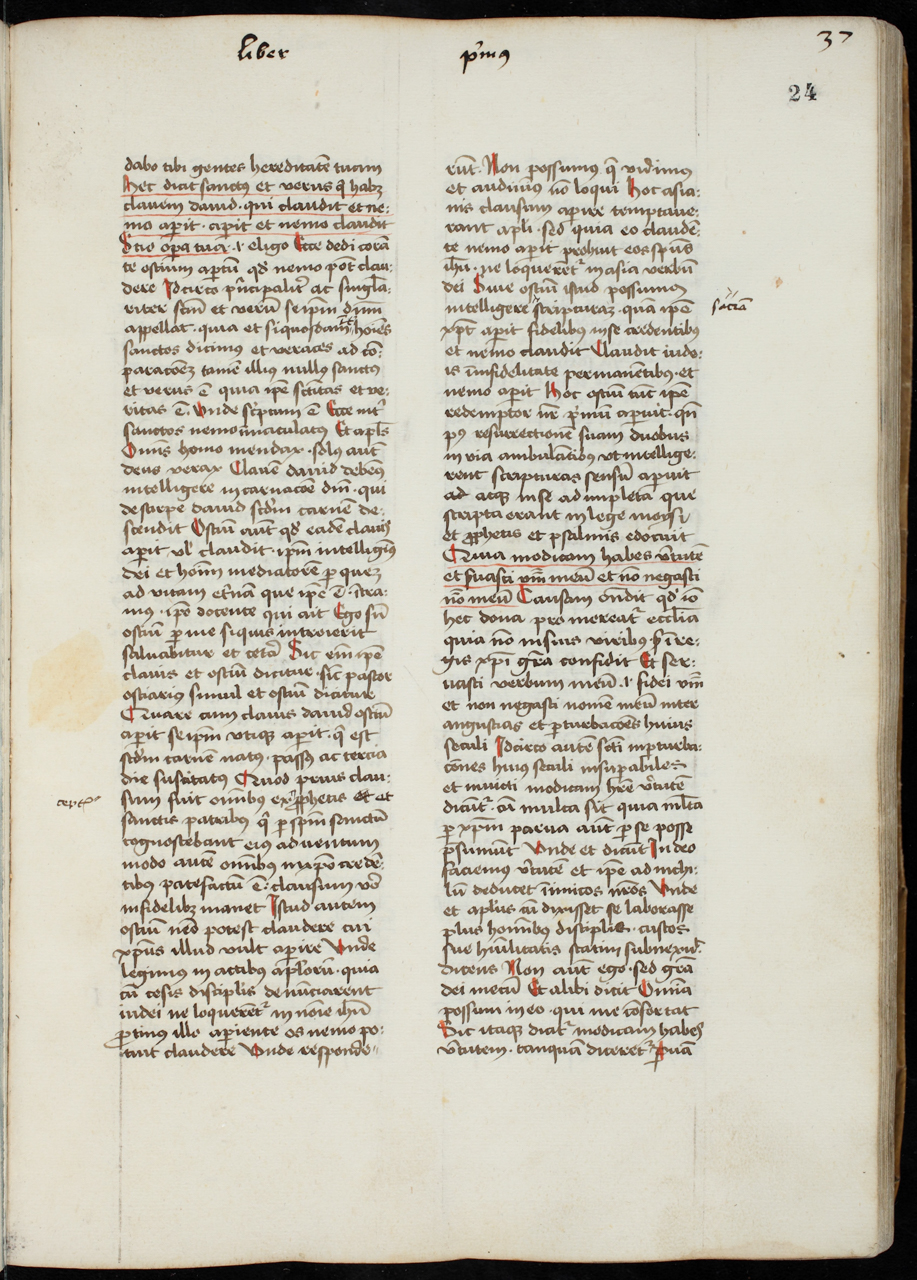 liber
primus
37
24
dabo tibi gentes hereditatē tuam
Hec dicit sanctus et verus q̄ habꝫ
clavem david · qui claudit et ne-
mo aperit · aperit et nemo claudit
Scio opa tua · i· eligo Ecce dedi corā
te ostium aptū qd' nemo pōt clau-
dere Idcirco pͥncipalit' ac singla-
riter scm̄ et verū seipm dn̄m
appellat · quia et si quosdam hoies
sanctos dicimus et veraces ad cō-
paracoēꝫ tamē illius nullus sanctus
et verus ē quia ipē sctitas et ve-
ritas ē · Unde scͥptum ē Ecce int'
sanctos nemo īmaculatus Et apl's
Omīs homo mendax · solus aūt
deus verax Clauē david debem9
intelligere incarnacoēꝫ dnī · qui
de stirpe david scd'm carnē de-
scendit Ostiū aūt qd' eadē clauis
aperit ul' claudit · ipm intelligim9
dei et homī mediatorē per quez
ad vitam et'nā que ipē ē · ītra-
mus · ipo docente qui ait Ego sū
ostiū per me siquis introierit
saluabitur et cetā Sic em ipē
clauis et ostiū dicitur · sic pastor
ostiarius simul et ostiū dicitur
Quare cum clauis david ostiū
aperit seipm utiqꝫ aperit · qͥ est
scd'm carnē natus · passꝯ ac tercia
die suscitatus Quod prius clau-
sum fuit omībus exꝑphetis et et
sanctis patribus qͥ per spm sanctū
cognoscebant eius adventum
modo autē omībus in xpo credē-
tibus patefactū ē · clausum v'o
infidelibꝫ manet Istud autem
ostiū nemo potest claudere cui
xpus illud vult aperire Unde
legimus in actibus aplorū · quia
cū cesis disciplis denunciarent
iudei ne loquerent' in noīe ihū
protinus illo aperiente os nemo po-
tuit claudere Unde responde-
cept
rūt · Non possumus q̄ vidimus
et audimus nō loqui Hoc asia-
nis clausum aperire temptaue-
rant apli · sed quia eo claudē-
te nemo aperit prohiuit eos spūs
ihū · ne loquerent' in asia verbū
dei Siue ostiū istud possumus
intelligere scripturaꝫ · quā ipē
xpc aperit fidelibus in se credentibus
et nemo claudit Claudit iude-
is ī infidelitate permanētibus · et
nemo aperit Hoc ostiū tūc ipē
redemptor nr̄ pͥmū aperuit · qn̄
pꝯ resurrectionē suam duobus
in via ambulātibus ut intellige-
rent scripturas sensū aperuit
ad atqꝫ in se adimpleta que
scripta erant in lege moysi
et ꝓphetis et psalmis edocuit
Quia modicam habes v'tutē
et suasti vm̄ meū et nō negasti
nō meū Causam ondit qd' iō
hec dona promereat' ecclīa
quia nō in suis viribus s' ī re-
gis xpī grā confidit Et ser-
uasti verbum meū · i· fidei vm̄
et non negasti nomē meū inter
angustias et perturbacoēs huius
seculi Idcirco autē scti īperturba-
cōnes huius seculi insuperabiles
et inuicti modicam hr̄e v'tutē
dicūt' · cū multa sit quia ml'ta
per xpm parua aūt per se posse
presumūt Unde et dicūt In deo
faciemus v'tutē et ipē ad nichi-
lū deducet inimicos nr̄os Unde
et apl'us cū dixisset se laborasse
plus homībus disciplis · custos
sue hūilitatis statim subnexuit
dicens Non aūt ego · sed grā
dei mecū Et alibi dicit Omīa
possum in eo · qui me cōfortat
Sic itaqꝫ dicit' modicam habes
v'tutem · tanquā diceret' quā
sacrā